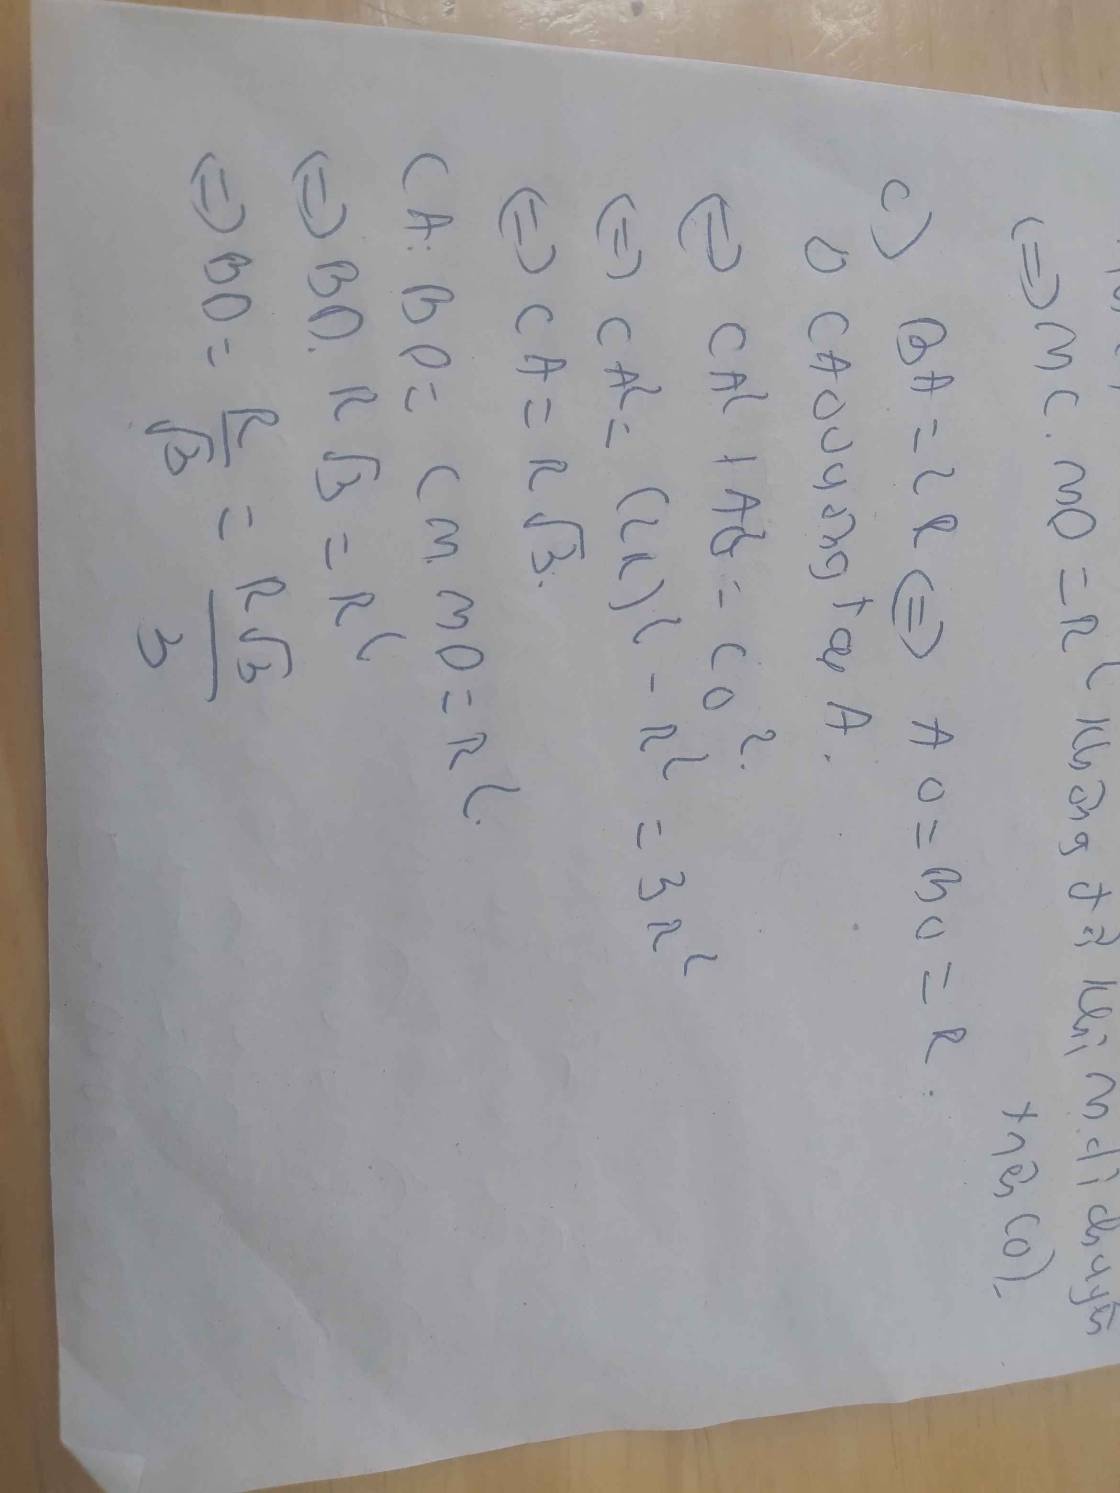 (=) MC. MD = R² không đổi khi M di chuyển
trên (O).
c) BA = 2R (=) AO = BO = R.
Δ CAO vuông tại A.
(=) CA² + AO² = CO².
(=) CA² = (2R)² - R² = 3R²
(=) CA = R√3.
CA. BD = CM. MD = R².
(=) BD. R√3 = R²
(=) BD = R/√3 = R√3/3